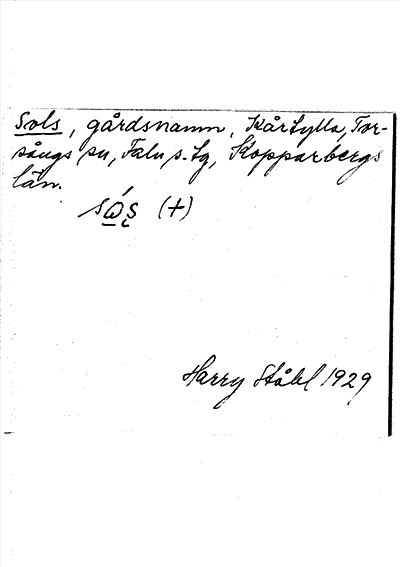 Sols, gårdsnamn, Kårtylla, Tor-
sångs sn, Falu s. tg, Kopparbergs
län.
(+)
Harry Ståhl 1929